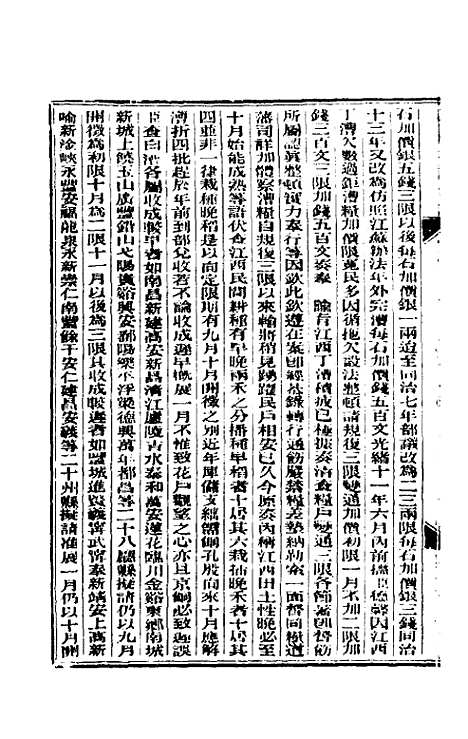 石加價銀五錢三限以後每石加價銀一兩迨至同治七年部議改爲二三兩限每石加價銀三錢同治
十三年又改爲仿照江蘇辦法年外完漕每石加價錢五百文光緒十一年六月內前撫臣德馨因江西
丁漕欠數過鉅漕糧加價隨民多因循拖欠設法整頓請規復三限變通加價初限一月不加二限加
錢三百文三限加錢五百文奏奉 諭旨江西丁漕積疲已極振奏清查糧戶變通三限各節著即督飭
所屬認眞整頓實力奉行等因欽此欽遵在案即經恭錄轉行通飭嚴禁糧差墊納勒索一面督同糧道
藩司詳加體察漕糧自規復三限以來輸將稍見踴躍民戶相安已久今原奏內稱江西田土性晚必至
十月始能成熟等語伏查江西民間耕種有早晚兩禾之分播種早稻者十居其六栽插晚禾者十居其
四並非一律栽種晚稻是以向定限期有九月十月開徵之別近年庫儲支絀餉需孔殷向來十月應解
漕折四批趕於年前到部兌收若不論收成遲早概展一月不惟致花戶觀望之心亦且京餉必致遲誤
臣查有漕各屬收成較早者如南昌新建高安新昌清江廬陵吉水泰和萬安蓮花臨川金谿東鄉南城
新城上饒玉山廣豐鉛山弋陽貴谿興安鄱陽樂平浮梁德興萬年都昌等二十八廳縣擬請仍以九月
開徵爲初限十月爲二限十一月以後爲三限其收成較遲者如豐城進賢義寧武寧奉新靖安上高新
喻新淦峽永豐安福龍泉永新崇仁南豐餘干安仁建昌安義等二十州縣擬請准展一月仍以十月開